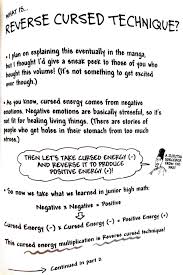 WHAT IS...
REVERSE CURSED TECHNIQUE?
• I plan on explaining this eventually in the manga,
but I thought I'd give a sneak peek to those of you who
bought this volume! (It's not something to get excited
over though.)
• As you know, cursed energy comes from negative
emotions. Negative emotions are basically stressful, so it's
not fit for healing living things. (There are stories of
people who get holes in their stomach from too much
stress.)
THEN LET'S TAKE CURSED ENERGY (-)
AND REVERSE IT TO PRODUCE
POSITIVE ENERGY (+)!
• So now we take what we learned in junior high math:
Negative x Negative = Positive
Cursed Energy (-) x Cursed Energy (-) = Positive Energy (+)
This cursed energy multiplication is Reverse cursed technique!
Continued in part 2